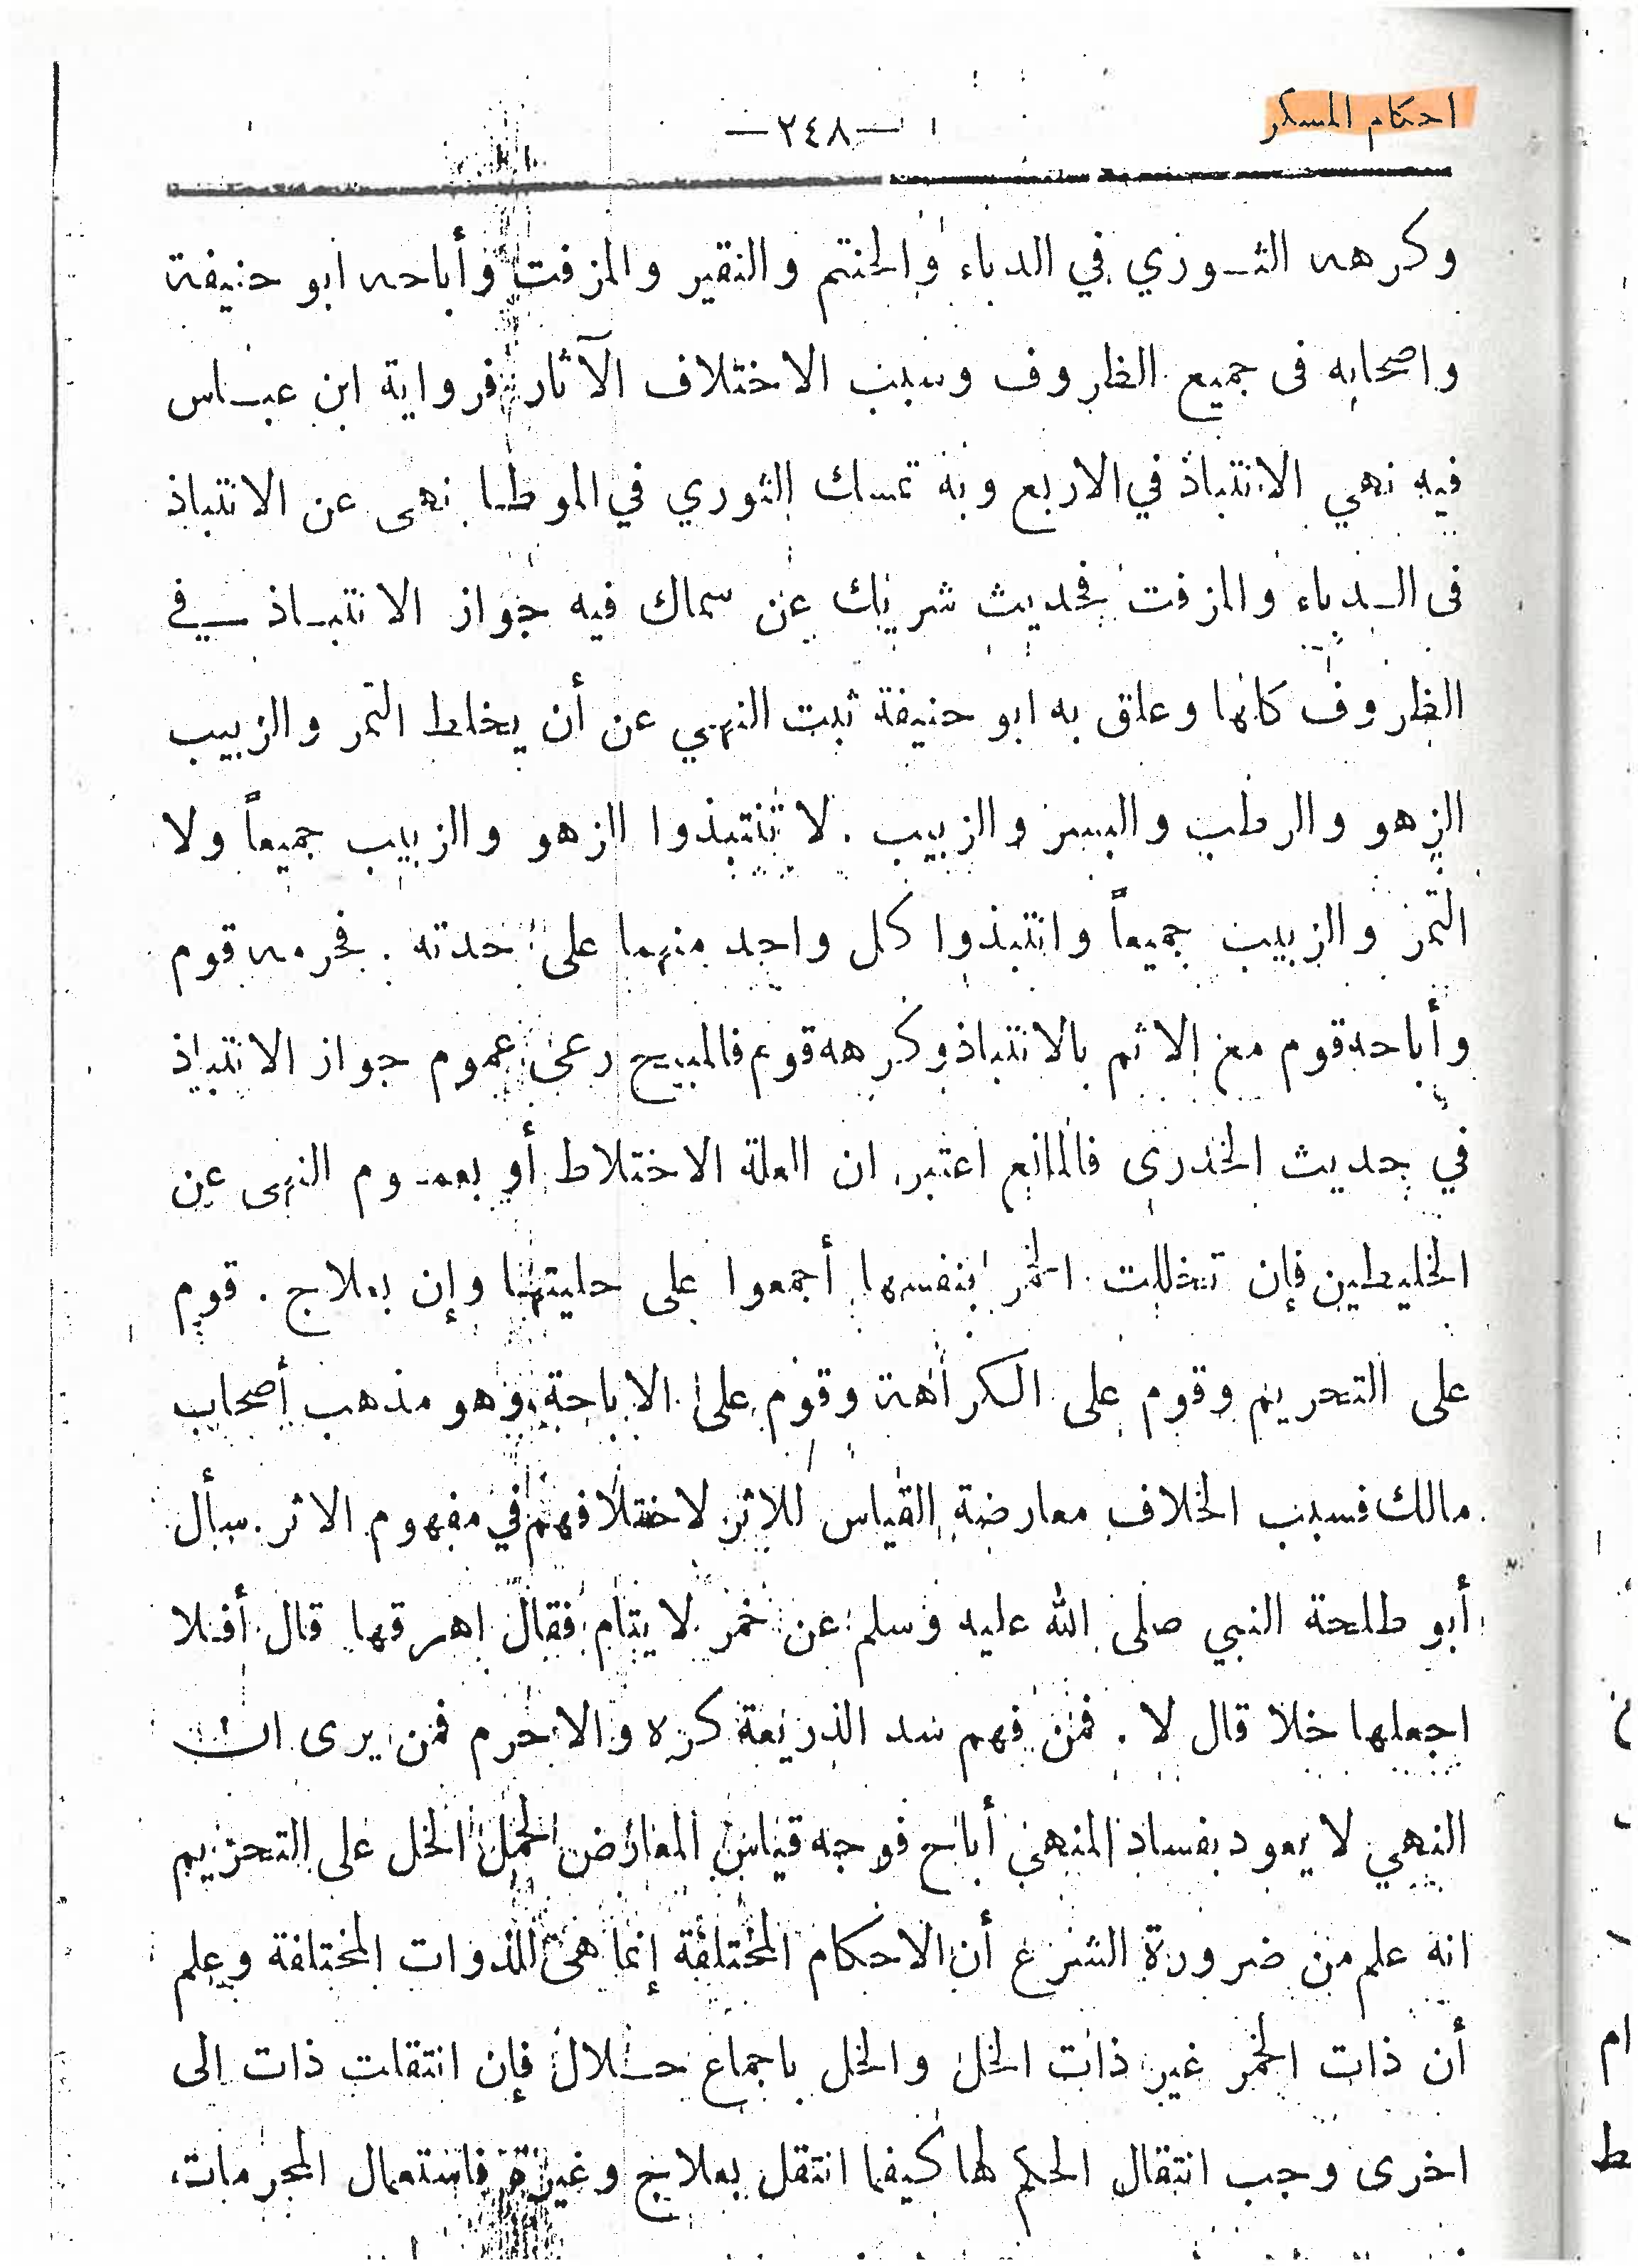 احكام المسكر
—٢٤٨—
وكرهه الثوري في الدباء والحنتم والنقير والمزفت وأباحه ابو حنيفة
واصحابه فى جميع الظروف وسبب الاختلاف الآثار فرواية ابن عباس
فيه نهي الانتباذ في الاربع وبه تمسك الثوري في الموطا نهى عن الانتباذ
فى الدباء والمزفت فحديث شريك عن سماك فيه جواز الانتباذ في
الظروف كلها وعلق به ابو حنيفة ثبت النهي عن أن يخلط التمر والزبيب
الزهو والرطب والبسر والزبيب . لا تنتبذوا الزهو والزبيب جميعاً ولا
التمر والزبيب جميعاً وانتبذوا كل واحد منهما على حدته . فحرمه قوم
وأباحه قوم مع الاثم بالانتباذ وكرهه قوم فالمبيح رعى عموم جواز الانتباذ
في حديث الخدرى فالمانع اعتبر ان العلة الاختلاط أو بعموم النهى عن
الخليطين فإن تخللت الخمر بنفسها أجمعوا على حليتها وإن بعلاج . قوم
على التحريم وقوم على الكراهة وقوم على الاباحة وهو مذهب أصحاب
مالك فسبب الخلاف معارضة القياس للاثر لاختلافهم في مفهوم الاثر . سأل
أبو طلحة النبي صلى الله عليه وسلم عن خمر لايتام فقال اهرقها قال أفلا
اجعلها خلا قال لا . فمن فهم سد الذريعة كره والا حرم فمن يرى ان
النهي لا يعود بفساد المنهي أباح فوجه قياس المعارض لحمل الخل على التحريم
انه علم من ضرورة الشرع أن الاحكام المختلفة إنما هى للذوات المختلفة وعلم
أن ذات الخمر غير ذات الخل والخل باجماع حلال فإن انتقلت ذات الى
اخرى وجب انتقال الحكم لها كيفما انتقل بعلاج وغيره فاستعمال المحرمات